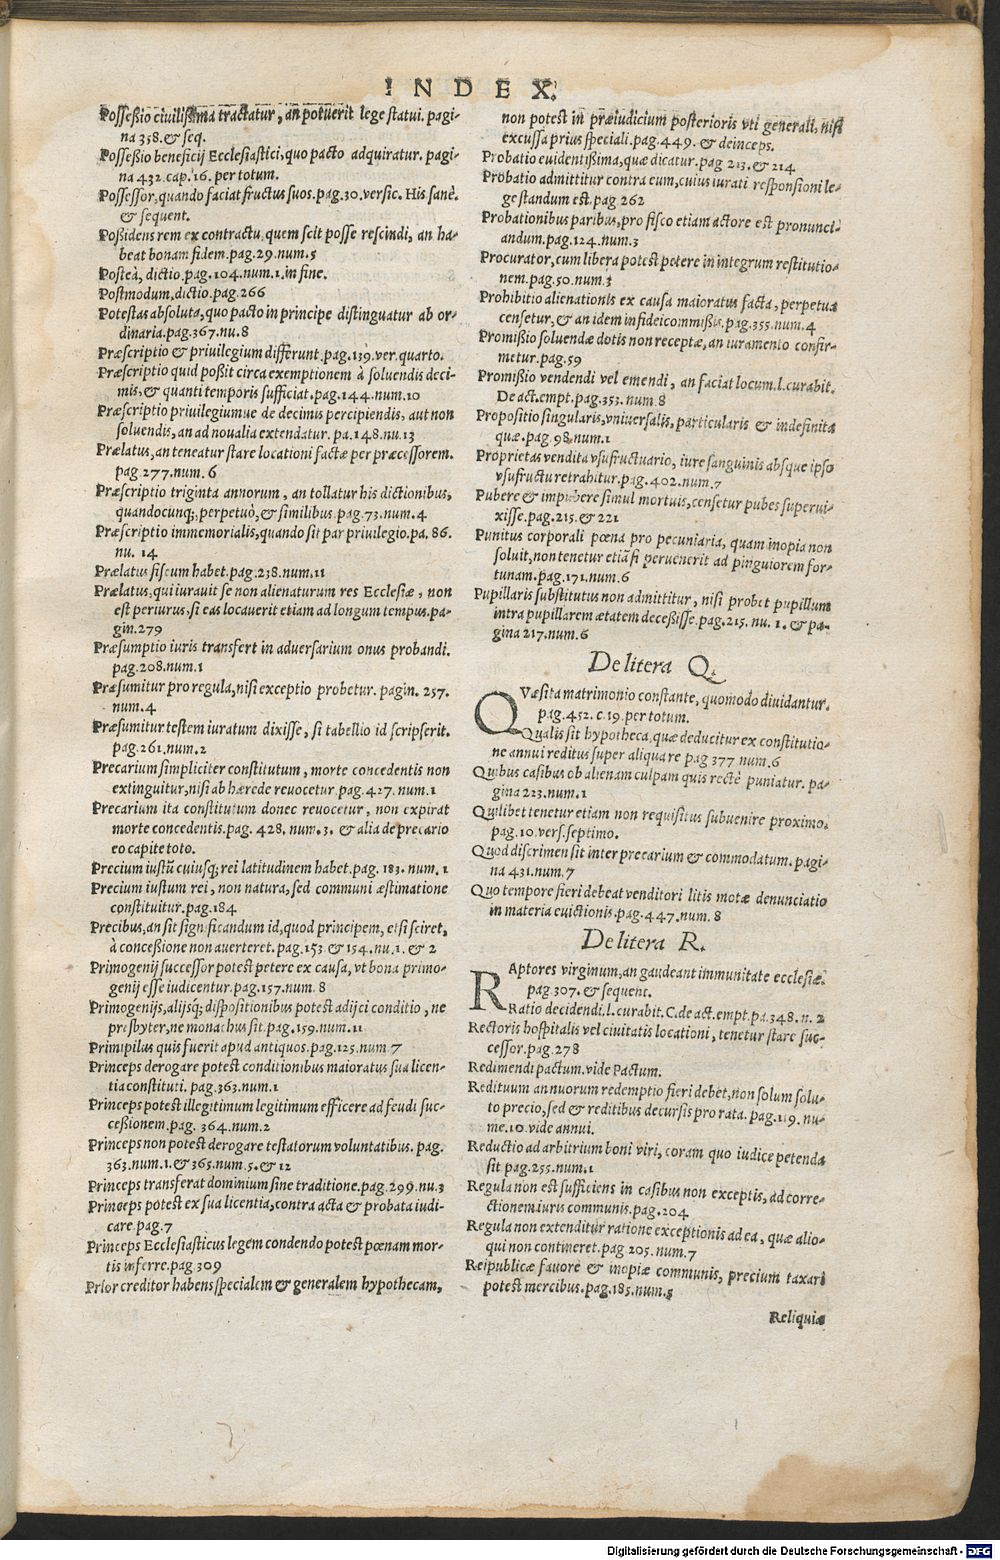 INDEX.
Possessio ciuilissima tractatur, an potuerit lege statui. pagi-
na 358. & seq.
Possessio beneficij Ecclesiastici, quo pacto adquiratur. pagi-
na 432. cap. 16. per totum.
Possessor, quando faciat fructus suos. pag. 30. versic. His sanè.
& sequent.
Possidens rem ex contractu, quem scit posse rescindi, an ha-
beat bonam fidem. pag. 29. num. 5
Posteà, dictio. pag. 104. num. 1. in fine.
Postmodum, dictio. pag. 266
Potestas absoluta, quo pacto in principe distinguatur ab or-
dinaria. pag. 367. nu. 8
Præscriptio & priuilegium differunt. pag. 139. ver. quarto.
Præscriptio quid possit circa exemptionem à soluendis deci-
mis, & quanti temporis sufficiat. pag. 144. num. 10
Præscriptio priuilegiumue de decimis percipiendis, aut non
soluendis, an ad noualia extendatur. pa. 148. nu. 13
Prælatus, an teneatur stare locationi factæ per præcessorem.
pag. 277. num. 6
Præscriptio triginta annorum, an tollatur his dictionibus,
quandocunq;, perpetuò, & similibus. pag. 73. num. 4
Præscriptio immemorialis, quando sit par priuilegio. pa. 86.
nu. 14
Prælatus fiscum habet. pag. 238. num. 11
Prælatus, qui iurauit se non alienaturum res Ecclesiæ, non
est periurus, si eas locauerit etiam ad longum tempus. pa-
gin. 279
Præsumptio iuris transfert in aduersarium onus probandi.
pag. 208. num. 1
Præsumitur pro regula, nisi exceptio probetur. pagin. 257.
num. 4
Præsumitur testem iuratum dixisse, si tabellio id scripserit.
pag. 261. num. 2
Precarium simpliciter constitutum, morte concedentis non
extinguitur, nisi ab hærede reuocetur. pag. 427. num. 1
Precarium ita constitutum donec reuocetur, non expirat
morte concedentis. pag. 428. num. 3. & alia de precario
eo capite toto.
Precium iustũ cuiusq; rei latitudinem habet. pag. 183. num. 1
Precium iustum rei, non natura, sed communi æstimatione
constituitur. pag. 184
Precibus, an sit significandum id, quod principem, etsi sciret,
à concessione non auerteret. pag. 153. & 154. nu. 1. & 2
Primogenij successor potest petere ex causa, vt bona primo-
genij esse iudicentur. pag. 157. num. 8
Primogenijs, alijsq; dispositionibus potest adijci conditio, ne
presbyter, ne monachus sit. pag. 159. num. 11
Primipilus quis fuerit apud antiquos. pag. 125. num. 7
Princeps derogare potest conditionibus maioratus sua licen-
tia constituti. pag. 363. num. 1
Princeps potest illegitimum legitimum efficere ad feudi suc-
cessionem. pag. 364. num. 2
Princeps non potest derogare testatorum voluntatibus. pag.
363. num. 1. & 365. num. 5. & 12
Princeps transferat dominium sine traditione. pag. 299. nu. 3
Princeps potest ex sua licentia, contra acta & probata iudi-
care. pag. 7
Princeps Ecclesiasticus legem condendo potest pœnam mor-
tis inferre. pag. 309
Prior creditor habens specialem & generalem hypothecam,
non potest in præiudicium posterioris vti generali, nisi
excussa prius speciali. pag. 449. & deinceps.
Probatio euidentissima, quæ dicatur. pag 213. & 214
Probatio admittitur contra eum, cuius iurati responsioni le-
ge standum est. pag 262
Probationibus paribus, pro fisco etiam actore est pronunci-
andum. pag. 124. num. 3
Procurator, cum libera potest petere in integrum restitutio-
nem. pag. 50. num. 3
Prohibitio alienationis ex causa maioratus facta, perpetua
censetur, & an idem in fideicommissis. pag. 355. num. 4
Promissio soluendæ dotis non receptæ, an iuramento confir-
metur. pag. 59
Promissio vendendi vel emendi, an faciat locum. l. curabit.
De act. empt. pag. 353. num. 8
Propositio singularis, vniuersalis, particularis & indefinita
quæ. pag 98. num. 1
Proprietas vendita vsufructuario, iure sanguinis absque ipso
vsufructu retrabitur. pag. 402. num. 7
Pubere & impubere simul mortuis, censetur pubes superui-
xisse. pag. 215. & 221
Punitus corporali pœna pro pecuniaria, quam inopia non
soluit, non tenetur etiã si peruenerit ad pinguiorem for-
tunam. pag. 171. num. 6
Pupillaris substitutus non admittitur, nisi probet pupillum
intra pupillarem ætatem decessisse. pag. 215. nu. 1. & pa-
gina 217. num. 6
De litera Q.
QVæsita matrimonio constante, quomodo diuidantur.
pag. 452. c. 19. per totum.
Qualis sit hypotheca, quæ deducitur ex constitutio-
ne annui reditus super aliqua re pag 377 num. 6
Quibus casibus ob alienam culpam quis rectè puniatur. pa-
gina 223. num. 1
Quilibet tenetur etiam non requisitus subuenire proximo.
pag. 10. vers. septimo.
Quod discrimen sit inter precarium & commodatum. pagi-
na 431. num. 7
Quo tempore fieri debeat venditori litis motæ denunciatio
in materia euictionis. pag. 447. num. 8
De litera R.
RAptores virginum, an gaudeant immunitate ecclesiæ.
pag 307. & sequent.
Ratio decidendi. l. curabit. C. de act. empt. pa. 348. n. 2
Rectoris hospitalis vel ciuitatis locationi, tenetur stare suc-
cessor. pag. 278
Redimendi pactum. vide Pactum.
Redituum annuorum redemptio fieri debet, non solum solu-
to precio, sed & reditibus decursis pro rata. pag. 119. nu-
me. 10. vide annui.
Reductio ad arbitrium boni viri, coram quo iudice petenda
sit pag. 255. num. 1
Regula non est sufficiens in casibus non exceptis, ad corre-
ctionem iuris communis. pag. 204
Regula non extenditur ratione exceptionis ad ea, quæ alio-
qui non contineret. pag 205. num. 7
Reipublicæ fauore & inopiæ communis, precium taxari
potest mercibus. pag. 185. num. 5
Reliquiæ
Digitalisierung gefördert durch die Deutsche Forschungsgemeinschaft - DFG